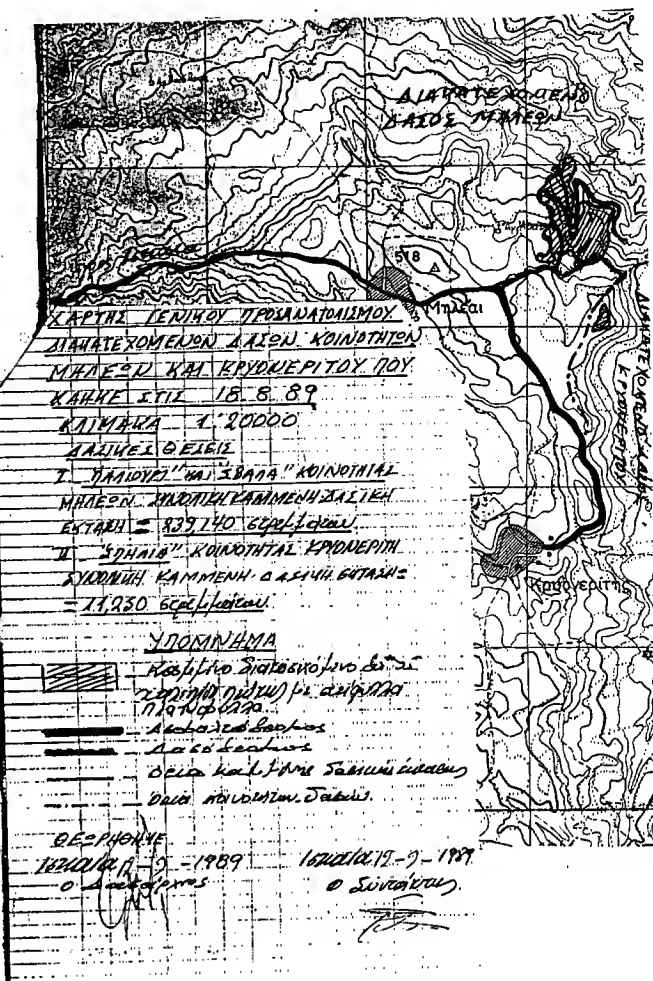 ΔΙΑΚΑΤΕΧΟΜΕΝΟ
ΔΑΣΟΣ ΜΗΛΕΩΝ
518
Μηλέαι
ΔΙΑΚΑΤΕΧΟΜΕΝΟ ΔΑΣΟΣ
ΚΡΥΟΝΕΡΙΤΟΥ
Κρυονερίτης
ΧΑΡΤΗΣ ΓΕΝΙΚΟΥ ΠΡΟΣΑΝΑΤΟΛΙΣΜΟΥ
ΔΙΑΚΑΤΕΧΟΜΕΝΩΝ ΔΑΣΩΝ ΚΟΙΝΟΤΗΤΩΝ
ΜΗΛΕΩΝ ΚΑΙ ΚΡΥΟΝΕΡΙΤΟΥ ΠΟΥ
ΚΑΗΚΕ ΣΤΙΣ 18.8.89
ΚΛΙΜΑΚΑ 1:20000
ΔΑΣΙΚΕΣ ΘΕΣΕΙΣ
Ι ΠΑΛΙΟΥΡΙ" ΚΑΙ ΣΒΑΛΑ" ΚΟΙΝΟΤΗΤΑΣ
ΜΗΛΕΩΝ ΣΥΝΟΛΙΚΗ ΚΑΜΜΕΝΗ ΔΑΣΙΚΗ
ΕΚΤΑΣΗ = 239,140 στρεμμάτων
ΙΙ "ΣΠΗΛΙΑ" ΚΟΙΝΟΤΗΤΑΣ ΚΡΥΟΝΕΡΙΤΗ
ΣΥΝΟΛΙΚΗ ΚΑΜΜΕΝΗ ΔΑΣΙΚΗ ΕΚΤΑΣΗ =
= 11,230 στρεμμάτων
ΥΠΟΜΝΗΜΑ
Καμμένο διακατεχόμενο δάσος
χαλεπίου πεύκης με αείφυλλα
πλατύφυλλα
Ασφαλτόδρομος
Δασόδρομος
όρια καμμένης δασικής έκτασης
όρια κοινοτήτων δασών.
ΘΕΩΡΗΘΗΚΕ
Ιστιαία -9-1989
Ο Δασάρχης
Ιστιαία 19-9-1989
Ο Συντάκτης